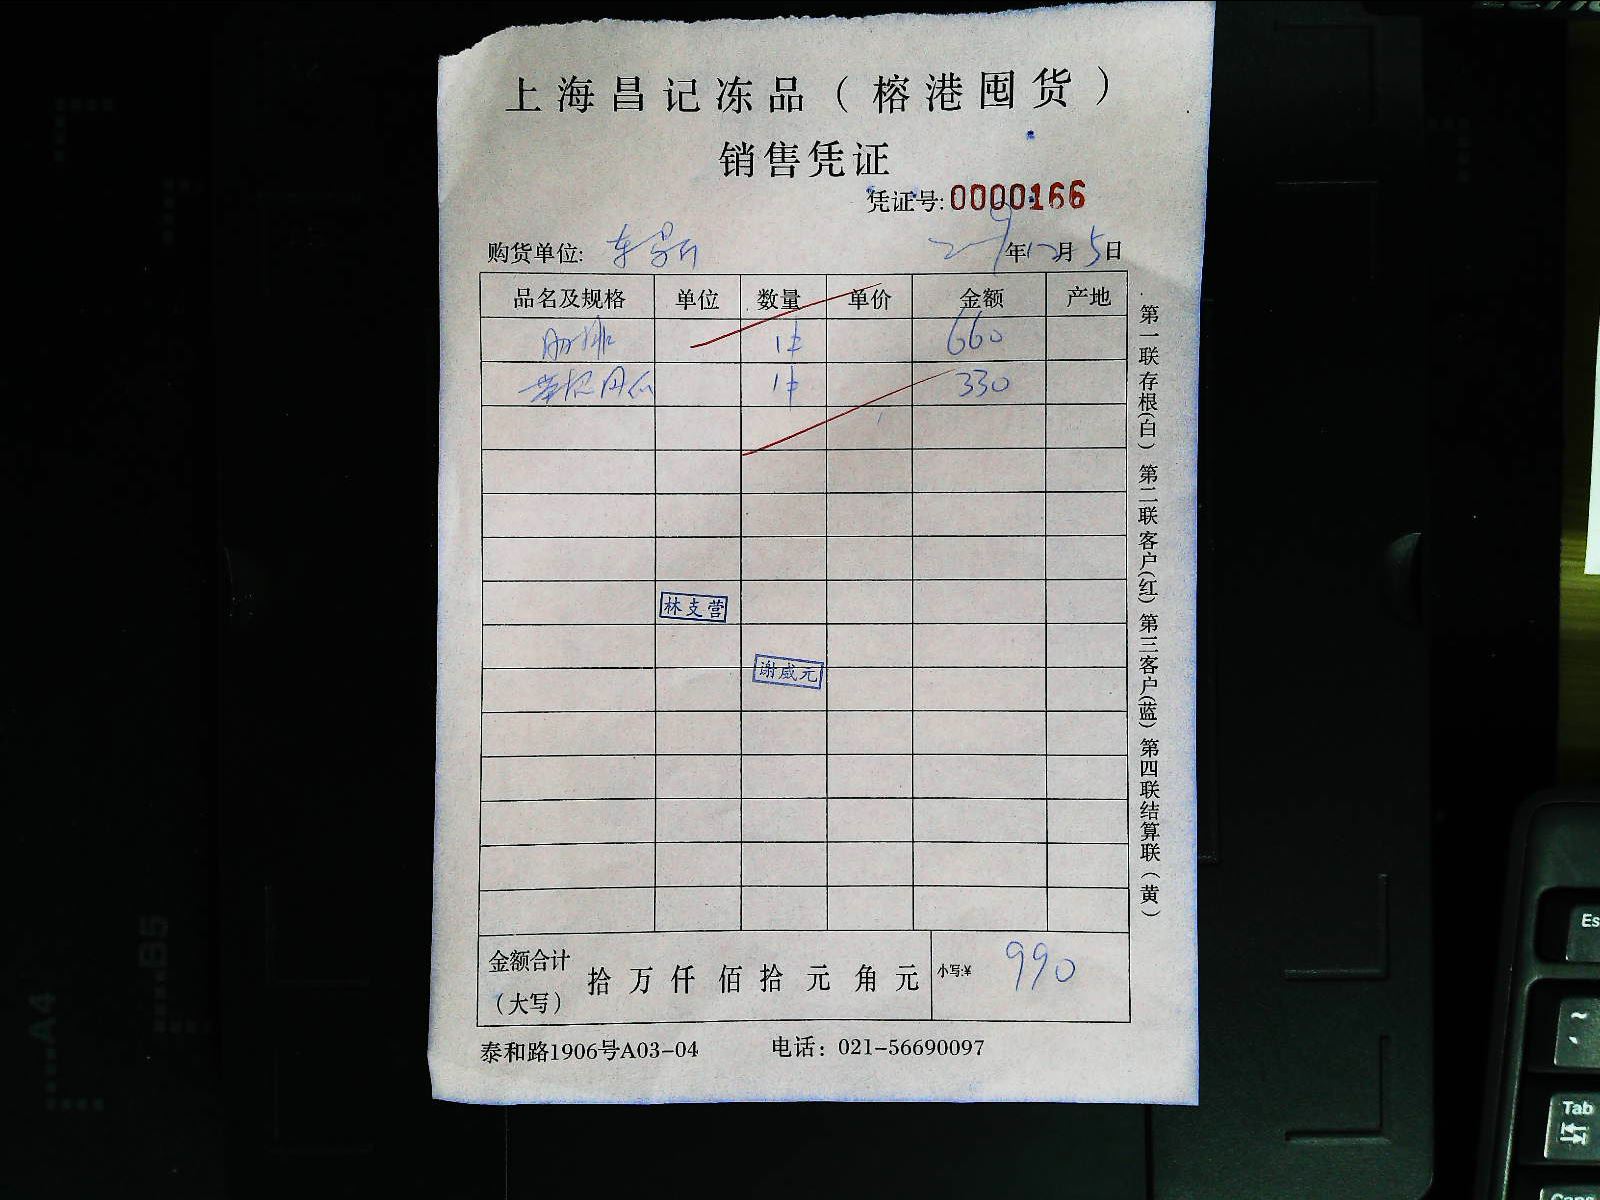 上海昌记冻品（榕港囤货）
销售凭证
凭证号:0000166
购货单位: 年12月5日
品名及规格 单位 数量 单价 金额 产地
肋排 1件 660
1件 330
林支营
谢威元
金额合计（大写） 拾 万 仟 佰 拾 元 角 元 小写:¥ 990
泰和路1906号A03-04 电话：021-56690097
第一联存根(白) 第二联客户(红) 第三客户(蓝) 第四联结算联(黄)
Es
~
Tab
Caps
A4
B5